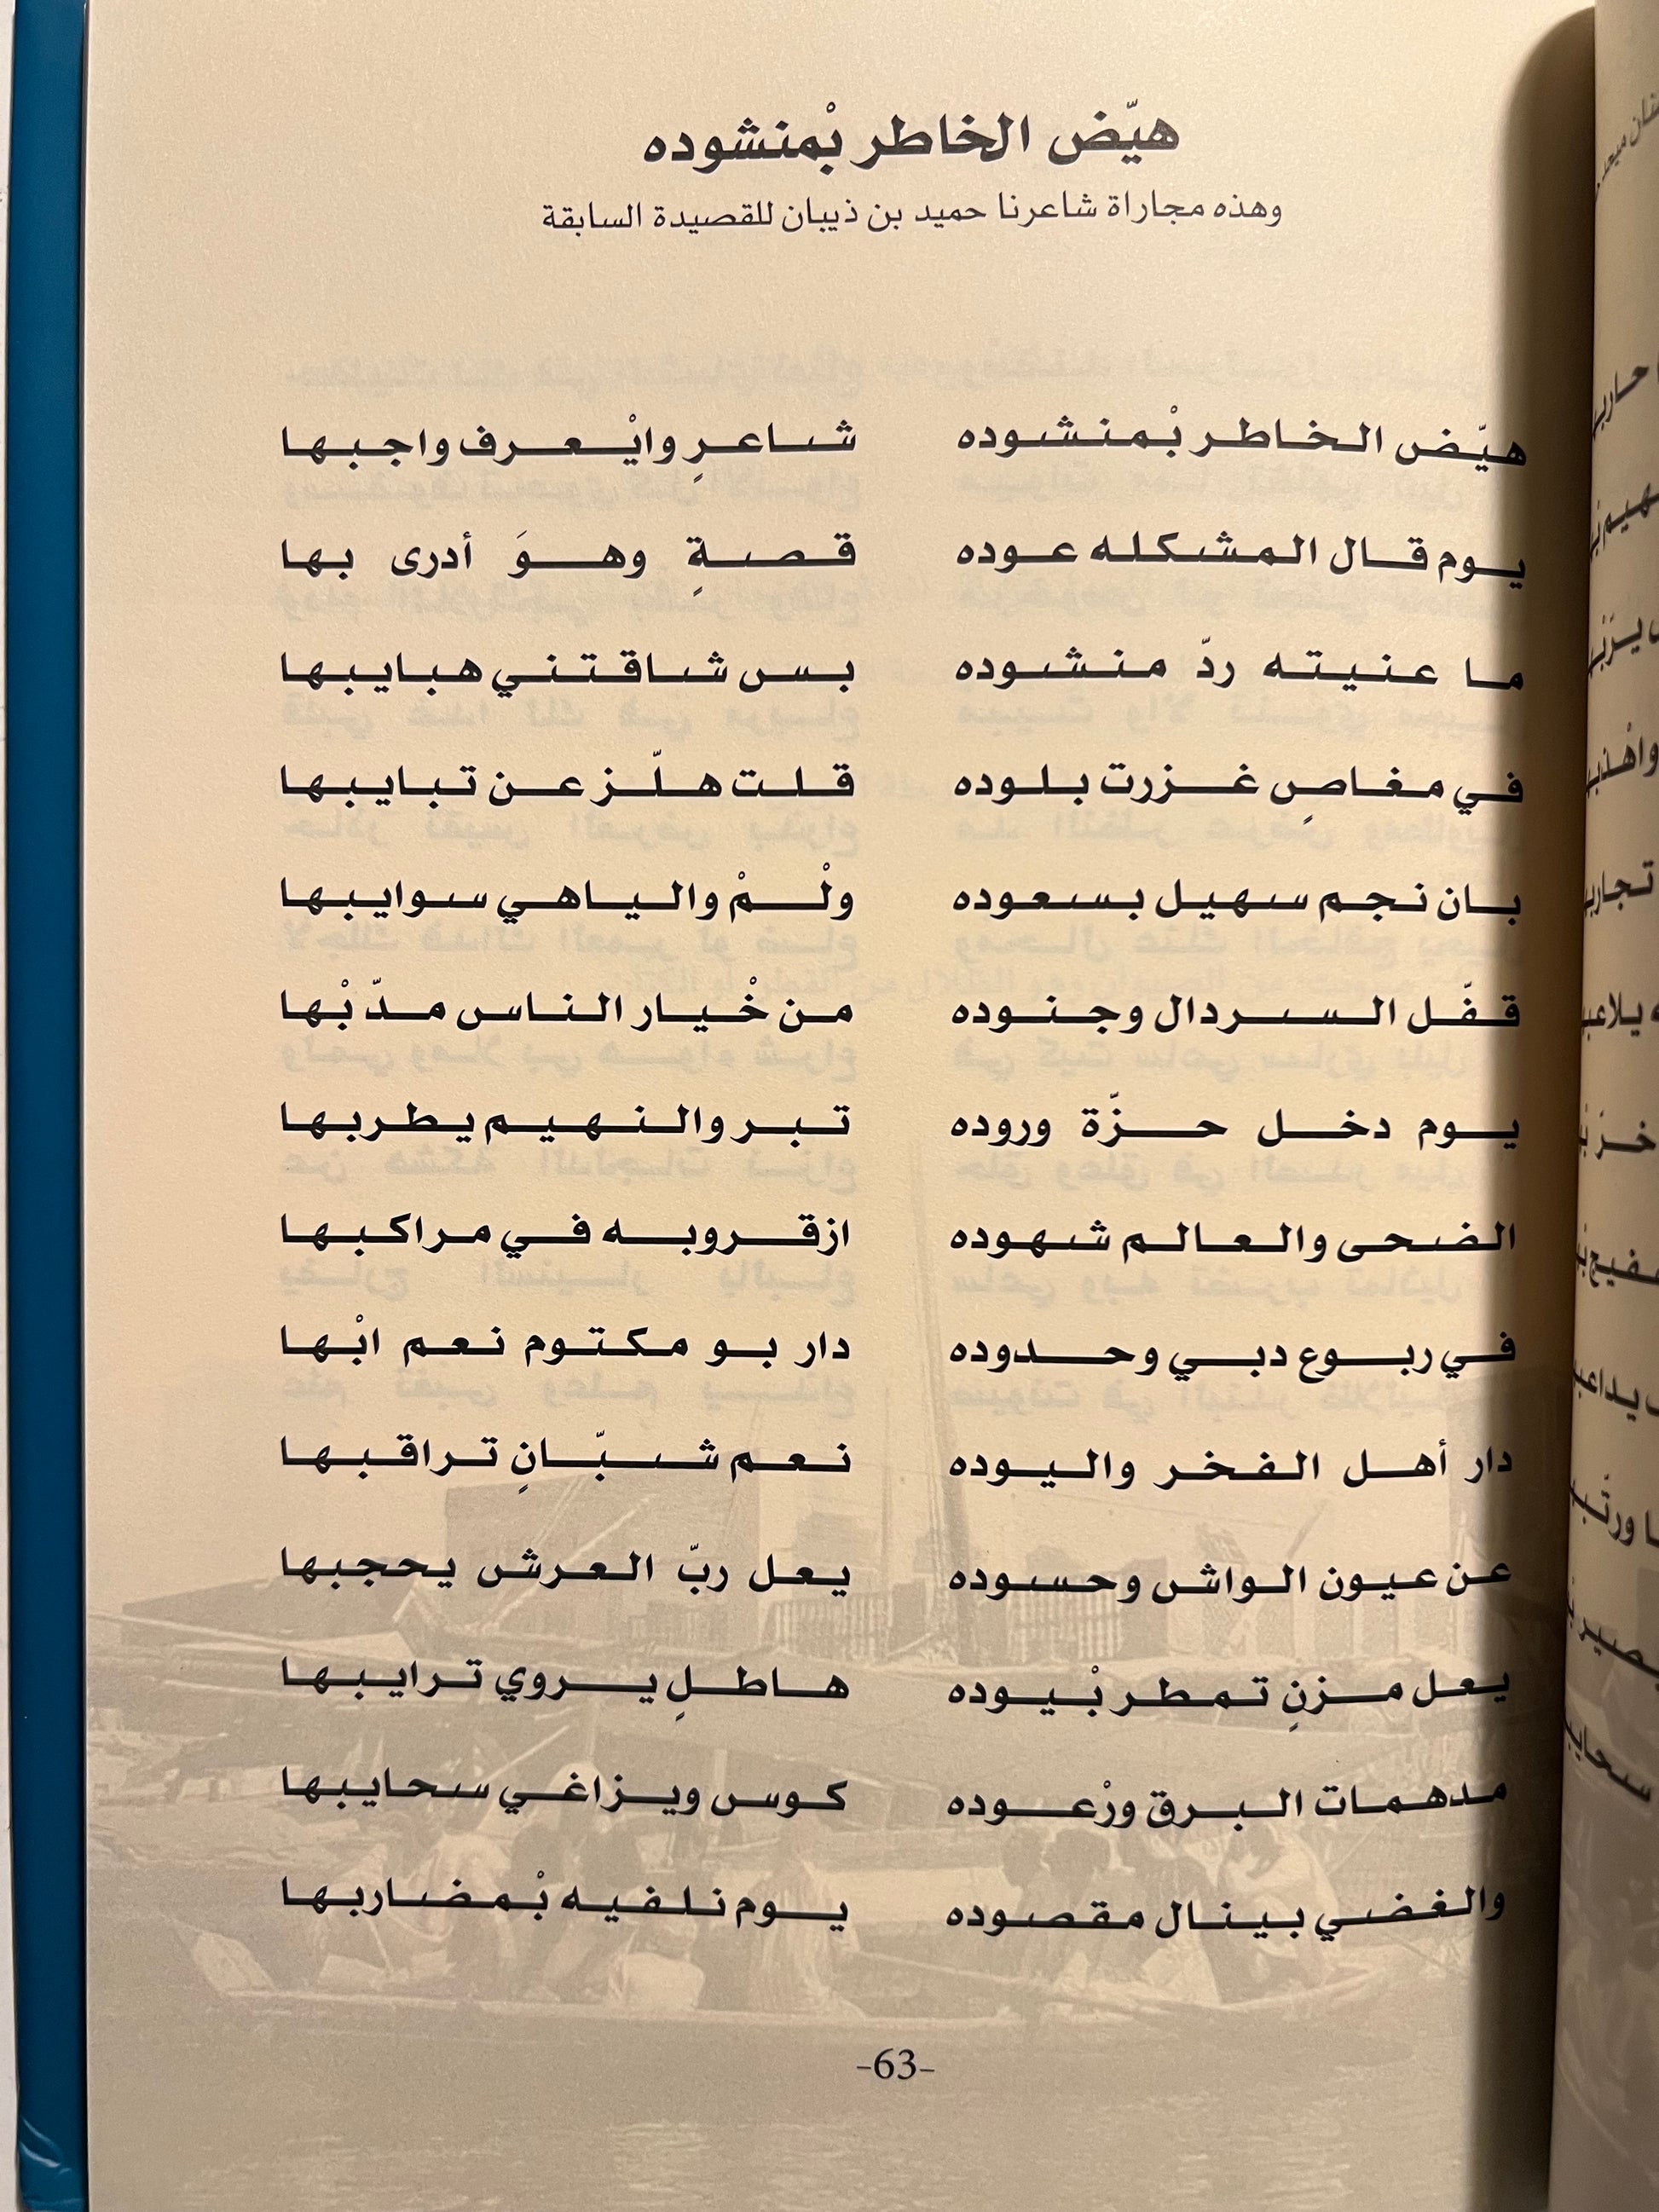 هيّض الخاطر بْمنشوده
وهذه مجاراة شاعرنا حميد بن ذيبان للقصيدة السابقة
هيّض الخاطر بْمنشوده شاعرٍ وايْعرف واجبها
يوم قال المشكله عوده قصةٍ وهوَ أدرى بها
ما عنيته ردّ منشوده بس شاقتني هبايبها
في مغاصٍ غزرت بلوده قلت هلّز عن تبايبها
بان نجم سهيل بسعوده ولْمْ والياهي سوايبها
قفّل السردال وجنوده من خْيار الناس مدّ بْها
يوم دخل حزّة وروده تبر والنهيم يطربها
الضحى والعالم شهوده ازقروبه في مراكبها
في ربوع دبي وحدوده دار بو مكتوم نعم ابْها
دار أهل الفخر واليوده نعم شبّانٍ تراقبها
عن عيون الواش وحسوده يعل ربّ العرش يحجبها
يعل مزنٍ تمطر بْيوده هاطلٍ يروي ترايبها
مدهمات البرق ورْعوده كوس ويزاغي سحايبها
والغضي بينال مقصوده يوم نلفيه بْمضاربها
-63-